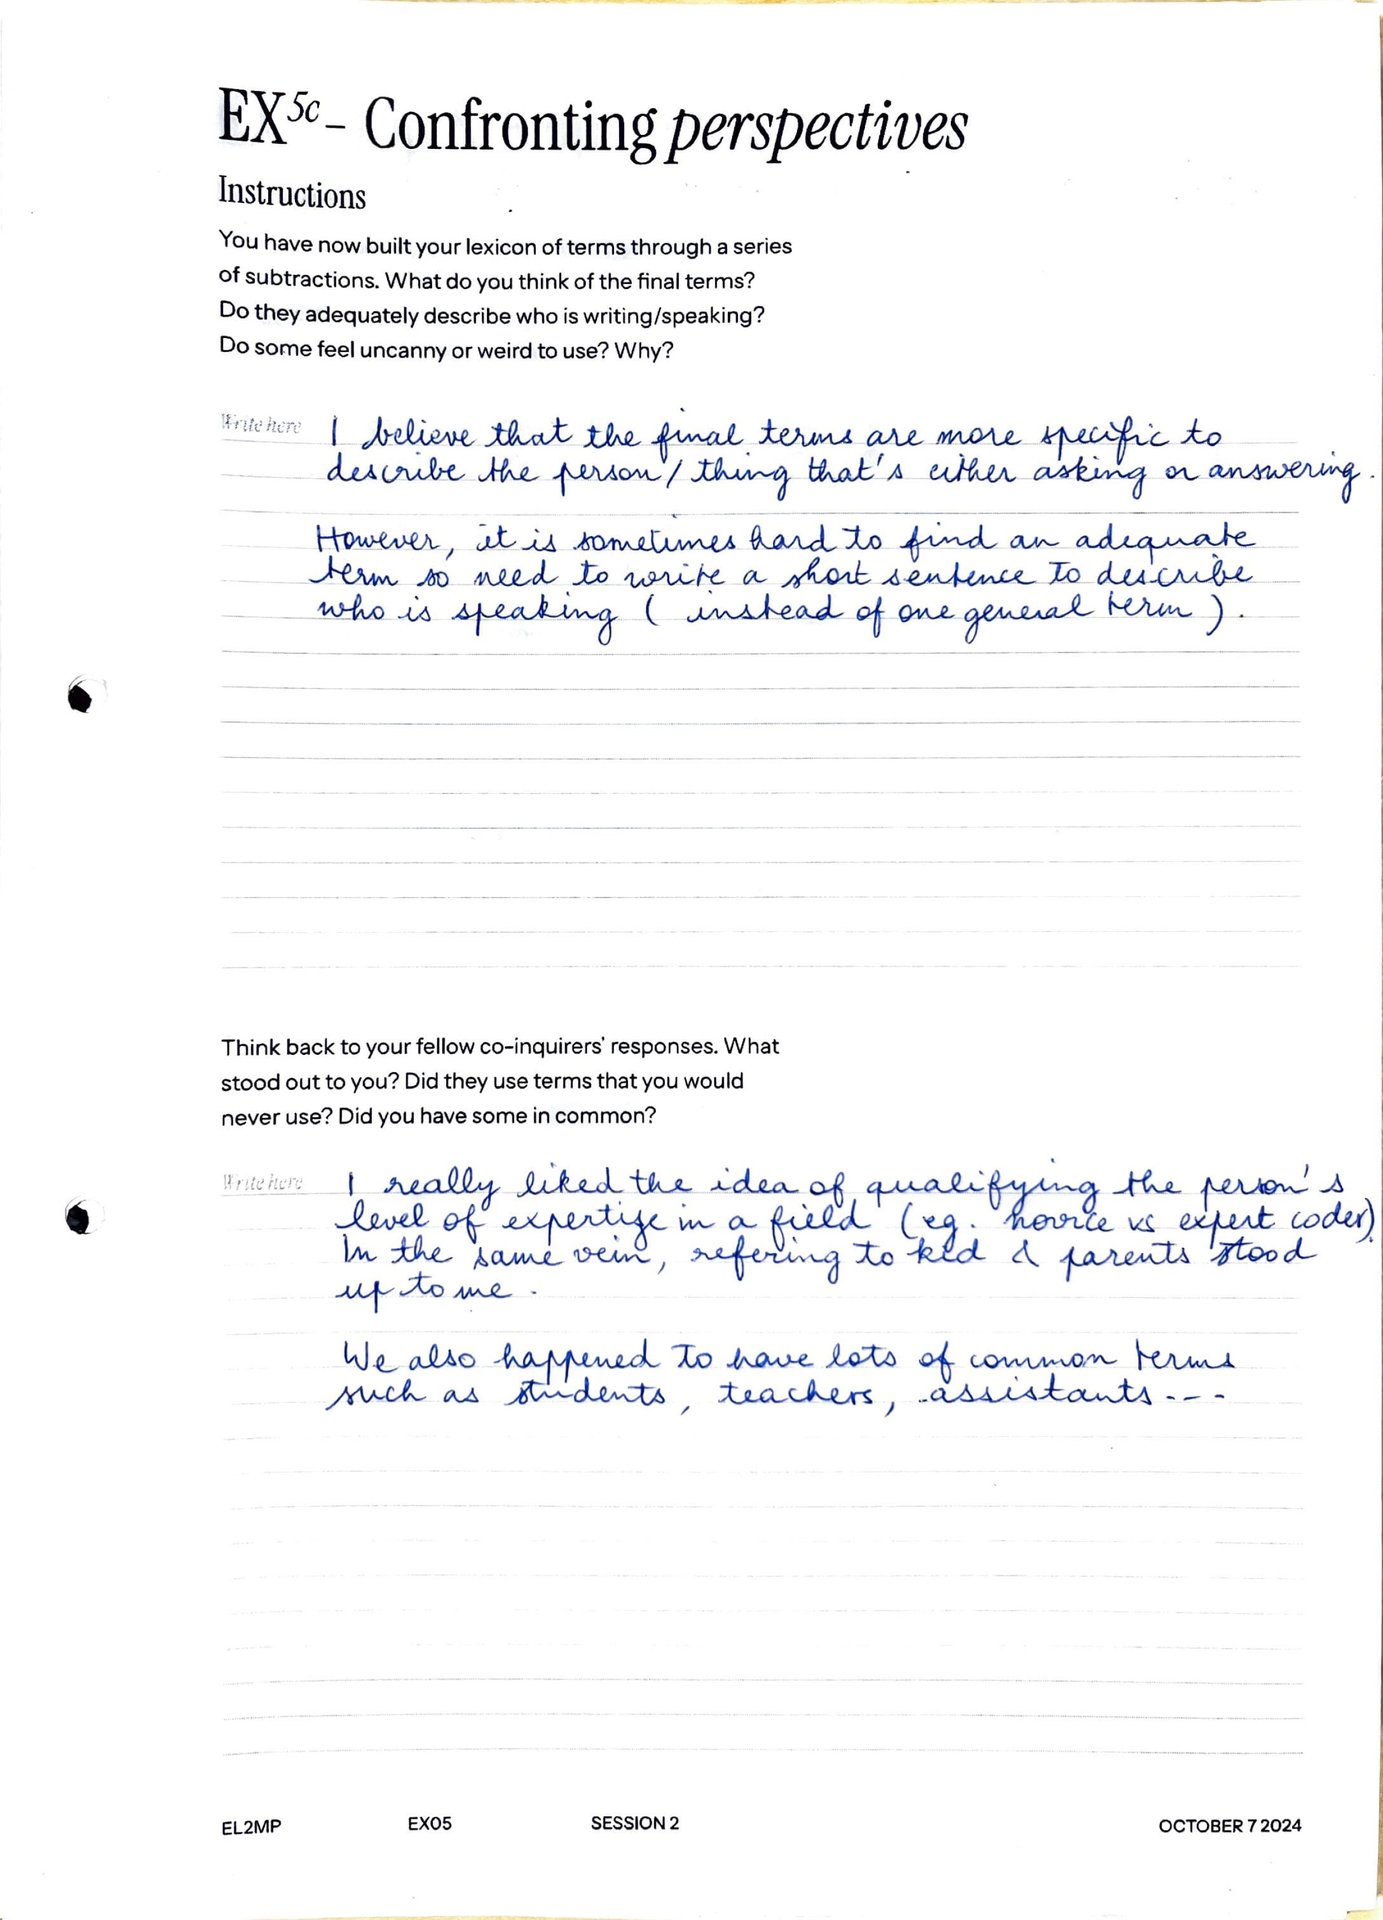 EX5c – Confronting perspectives
Instructions
You have now built your lexicon of terms through a series
of subtractions. What do you think of the final terms?
Do they adequately describe who is writing/speaking?
Do some feel uncanny or weird to use? Why?
Write here
I believe that the final terms are more specific to
describe the person / thing that's either asking or answering.
However, it is sometimes hard to find an adequate
term so need to write a short sentence to describe
who is speaking ( instead of one general term ).
Think back to your fellow co-inquirers' responses. What
stood out to you? Did they use terms that you would
never use? Did you have some in common?
Write here
I really liked the idea of qualifying the person's
level of expertize in a field (eg. novice vs expert coder).
In the same vein, refering to kid & parents stood
up to me.
We also happened to have lots of common terms
such as students, teachers, assistants---
EL2MP EX05 SESSION 2 OCTOBER 7 2024